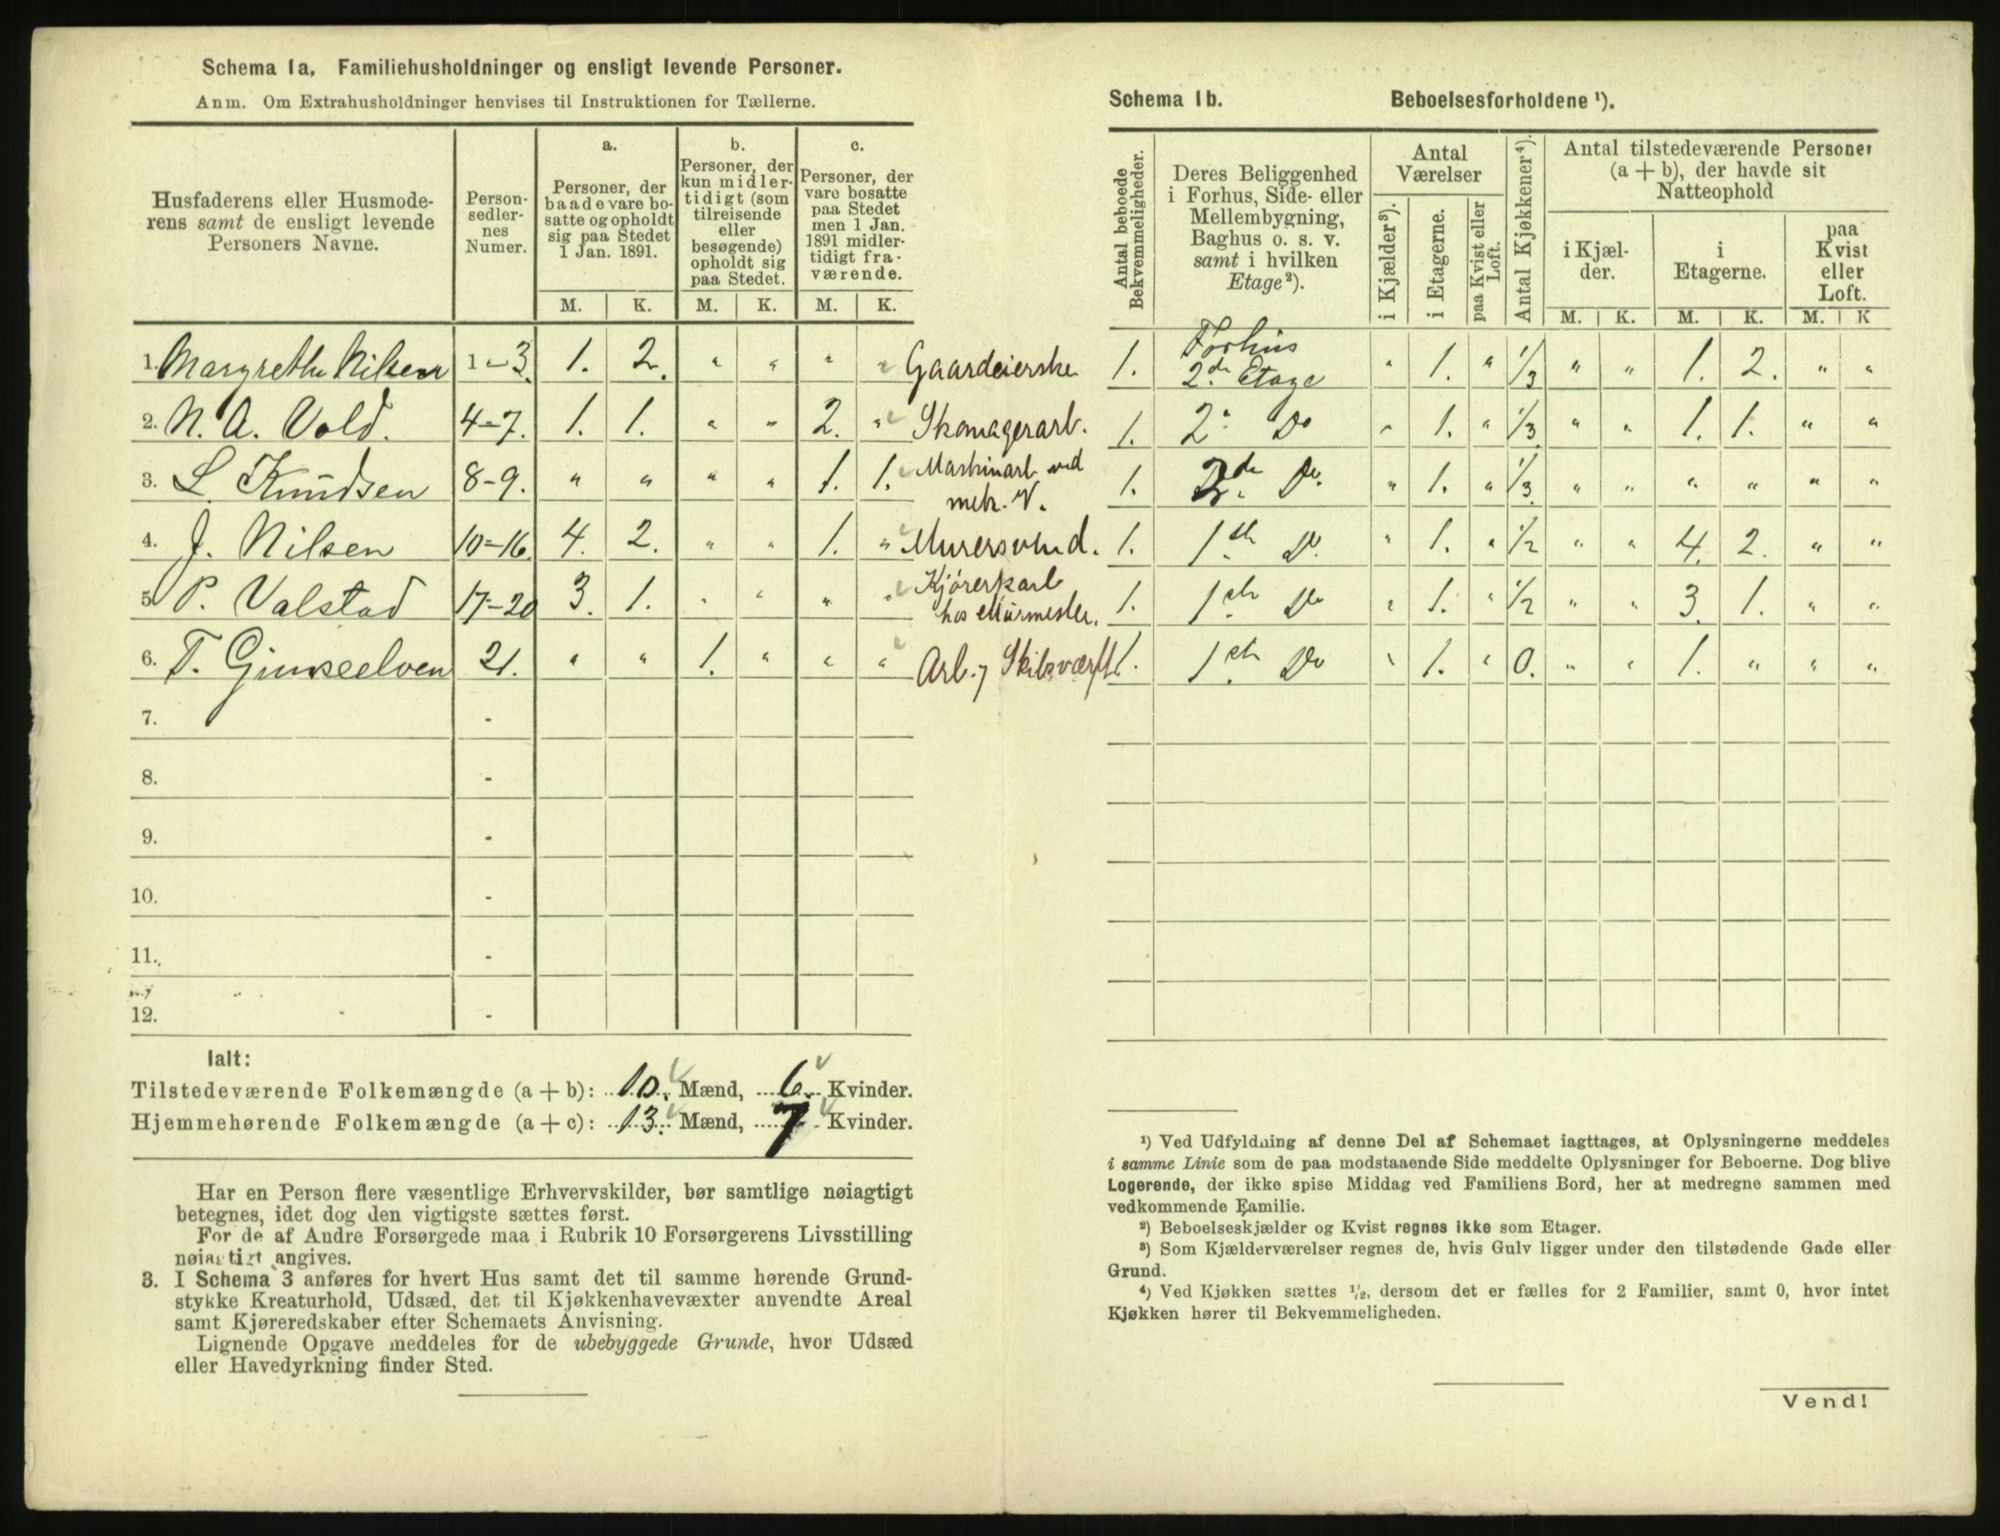 Schema 1a. Familiehusholdninger og ensligt levende Personer.
Anm. Om Extrahusholdninger henvises til Instruktionen for Tællerne.
Husfaderens eller Husmoderens samt de ensligt levende Personers Navne.
Personsedlernes Numer.
a. Personer, der baade vare bosatte og opholdt sig paa Stedet 1 Jan. 1891.
b. Personer, der kun midlertidigt (som tilreisende eller besøgende) opholdt sig paa Stedet.
c. Personer, der vare bosatte paa Stedet men 1 Jan. 1891 midlertidigt fraværende.
M. K. M. K. M. K.
1. Margrethe Nilsen 1-3. 1. 2. " " " " Gaardeierske
2. N. A. Vold. 4-7. 1. 1. " " 2. " Skomagerarb.
3. L. Knudsen 8-9. " " " " 1. 1. Maskinarb ved
mek. V.
4. J. Nilsen 10-16. 4. 2. " " 1. " Murersvend.
5. P. Valstad 17-20 3. 1. " " " " Kjørerkarl
hos Murmester.
6. T. 21. " " 1. " " " Arb. Skibsværft
7. -
8. -
9. -
10. -
11. -
12. -
Ialt:
Tilstedeværende Folkemængde (a + b): 10. Mænd, 6 Kvinder.
Hjemmehørende Folkemængde (a + c): 13. Mænd, 7 Kvinder.
Har en Person flere væsentlige Erhvervskilder, bør samtlige nøiagtigt
betegnes, idet dog den vigtigste sættes først.
For de af Andre Forsørgede maa i Rubrik 10 Forsørgerens Livsstilling
nøiagtigt angives.
3. I Schema 3 anføres for hvert Hus samt det til samme hørende Grund-
stykke Kreaturhold, Udsæd, det til Kjøkkenhavevæxter anvendte Areal
samt Kjøreredskaber efter Schemaets Anvisning.
Lignende Opgave meddeles for de ubebyggede Grunde, hvor Udsæd
eller Havedyrkning finder Sted.
Schema 1b. Beboelsesforholdene ¹).
Antal beboede Bekvemmeligheder.
Deres Beliggenhed i Forhus, Side- eller Mellembygning, Baghus o. s. v. samt i hvilken Etage²).
Antal Værelser
i Kjælder³).
i Etagerne.
paa Kvist eller Loft.
Antal Kjøkkener⁴).
Antal tilstedeværende Personer (a + b), der havde sit Natteophold
i Kjælder.
i Etagerne.
paa Kvist eller Loft.
M. K. M. K. M. K
1. Forhus
2de Etage " 1. " 1/3 " " 1. 2. " "
1. 2" Do " 1. " 1/3 " " 1. 1. " "
1. 2de Do. " 1. " 1/3. " " " " " "
1. 1ste Do. " 1. " 1/2 " " 4. 2. " "
1. 1ste Do " 1. " 1/2 " " 3. 1. " "
1. 1ste Do " 1. " 0. " " 1. " " "
¹) Ved Udfyldning af denne Del af Schemaet iagttages, at Oplysningerne meddeles
i samme Linie som de paa modstaaende Side meddelte Oplysninger for Beboerne. Dog blive
Logerende, der ikke spise Middag ved Familiens Bord, her at medregne sammen med
vedkommende Familie.
²) Beboelseskjælder og Kvist regnes ikke som Etager.
³) Som Kjælderværelser regnes de, hvis Gulv ligger under den tilstødende Gade eller
Grund.
⁴) Ved Kjøkken sættes ½, dersom det er fælles for 2 Familier, samt 0, hvor intet
Kjøkken hører til Bekvemmeligheden.
Vend!